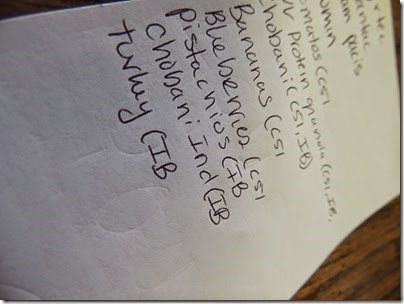 omatos (CSI
Protein granola (CSI, IB,
Chobani (CSI, IB)
Bananas (CSI
Blueberries (CSI
Pistachios (IB
Chobani Ind (IB
turkey (IB